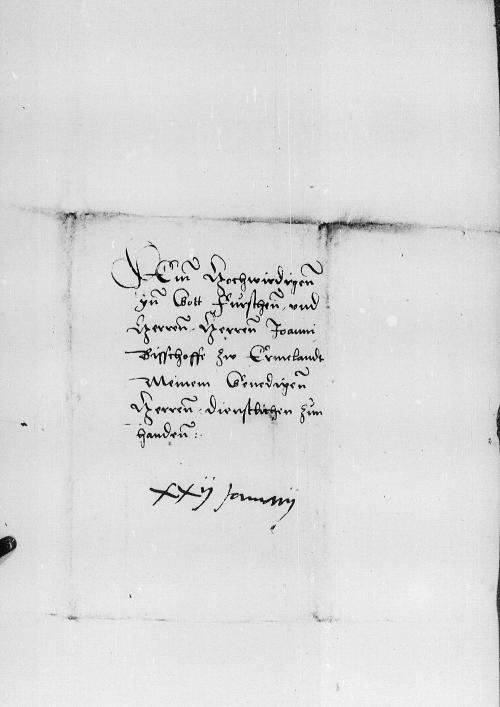 Dem Hochwirdigenn
ynn Gott Furschenn und
Herrenn Herrenn Joanni
Bisschoffe zw Ermelandt
Meinem Genedigenn
Herrenn dienstlichen zun
handenn:
XXIJ Januarij